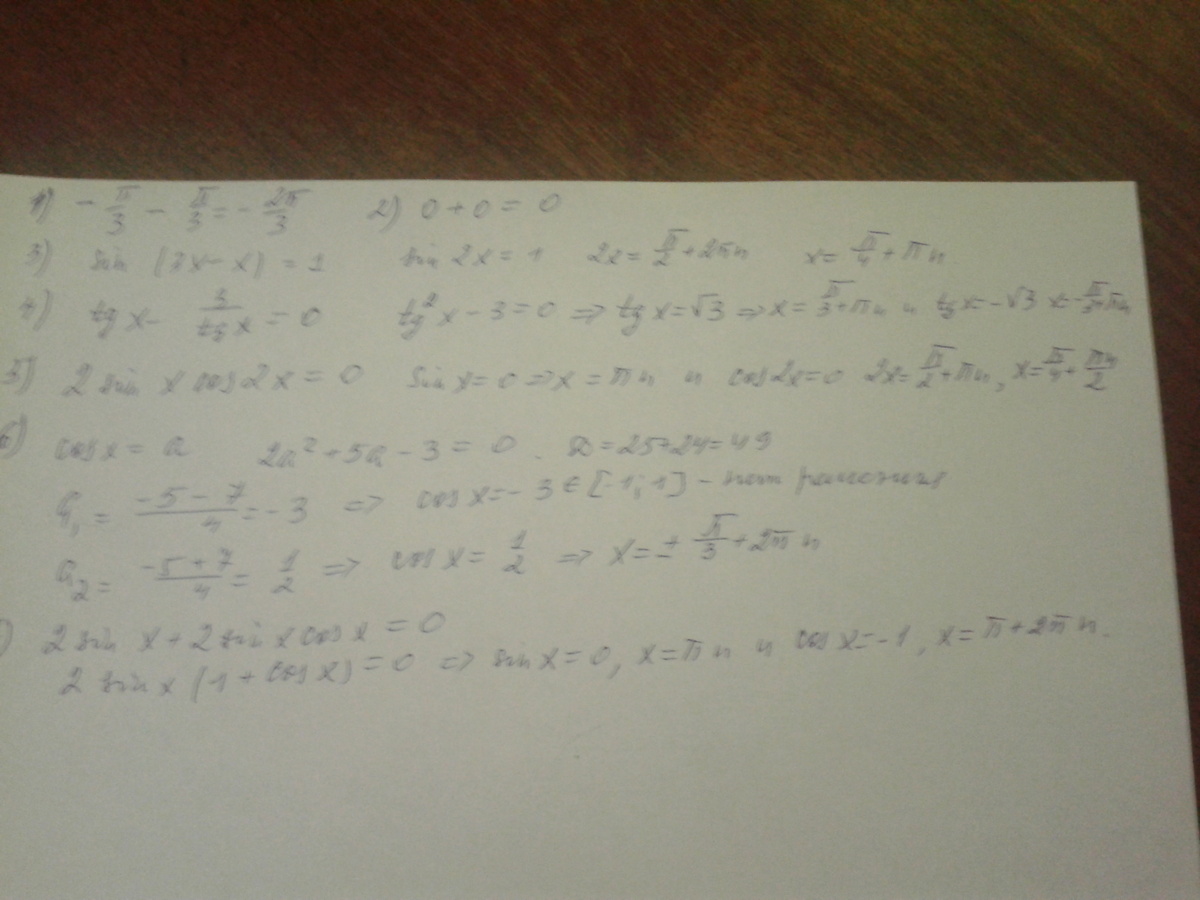 1) -π/3 - π/3 = -2π/3 2) 0 + 0 = 0
3) sin (3x - x) = 1 sin 2x = 1 2x = π/2 + 2πn x = π/4 + πn
4) tg x - 3/tg x = 0 tg² x - 3 = 0 => tg x = √3 => x = π/3 + πn и tg x = -√3 x = -π/3 + πn
5) 2 sin x cos 2x = 0 sin x = 0 => x = πn и cos 2x = 0 2x = π/2 + πn, x = π/4 + πn/2
6) cos x = a 2a² + 5a - 3 = 0. D = 25 + 24 = 49
a₁ = (-5 - 7)/4 = -3 => cos x = -3 ∈ [-1; 1] - нет решения
a₂ = (-5 + 7)/4 = 1/2 => cos x = 1/2 => x = ± π/3 + 2πn
) 2 sin x + 2 sin x cos x = 0
2 sin x (1 + cos x) = 0 => sin x = 0, x = πn и cos x = -1, x = π + 2πn.